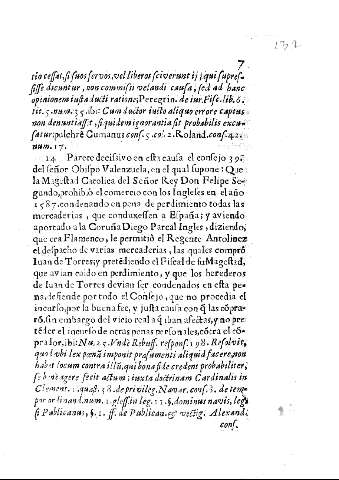 7
tio cessat, si suos servos, vel liberos sciverunt ij; qui supres-
sisse dicuntur, non commissi velandi causa, sed ad hanc
opinionem iusta ducti ratione; Peregrin. de iur. Fisc. lib. 6.
tit. 5. num. 35. ibi: Cum ductor iusto aliquo errore captus
non denuntiasset, si quidem ignorantia sit probabilis excu-
satur: pulchrè Cumanus cons. 5. col. 2. Roland. cons. 42.
num. 17.
14 Parece decissivo en esta causa el consejo 39.
del señor Obispo Valenzuela, en el qual supone: Que
la Magestad Catolica del Señor Rey Don Felipe Se-
gundo, prohibiò el comercio con los Ingleses en el año
1587. condenando en pena de perdimiento todas las
mercaderias, que conduxessen a España; y aviendo
aportado a la Coruña Diego Parcal Ingles, diziendo,
que era Flamenco, le permitiò el Regente Antolinez
el despacho de varias mercaderias, las quales comprò
Iuan de Torres; y pretendiendo el Fiscal de su Magestad,
que avian caido en perdimiento, y que los herederos
de Iuan de Torres devian ser condenados en esta pe-
na, defiende por todo el Consejo, que no procedia el
incurso, por la buena fee, y justa causa con q̃ las cõpra-
rõ, sin embargo del vicio real a q̃ iban afectas, y no per-
tẽder el incurso de otras penas personales, cõtra el cõ-
prador, ibi: Nu. 25. Vnde Rebuff. respons. 198. Resolvit,
quod vbi lex pœnã imponit præsumenti aliquid facere, non
habet locum contra illũ, qui bona fide credens probabiliter,
se benè agere fecit actum; iuxta doctrinam Cardinalis in
Clement. 1. quæst. 58. de privileg. Navar. cons. 3. de tem-
por ordinand. num. 1. gloss. in leg. 11. §. dominus navis, leg.
si Publicanus, §. 1. ff. de Publican. et vectig. Alexand.
cons.